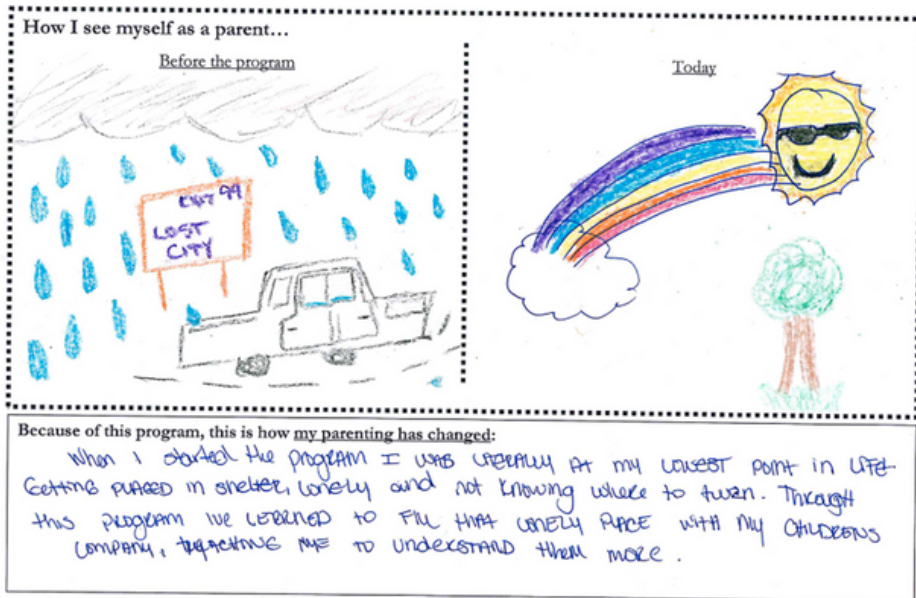 How I see myself as a parent...
Before the program
Today
EXIT 99
LOST
CITY
Because of this program, this is how my parenting has changed:
When I started the program I was literally at my lowest point in life
Getting placed in shelter, lonely and not knowing where to turn. Through
this program ive learned to fill that lonely place with my childrens
company, teaching me to understand them more.